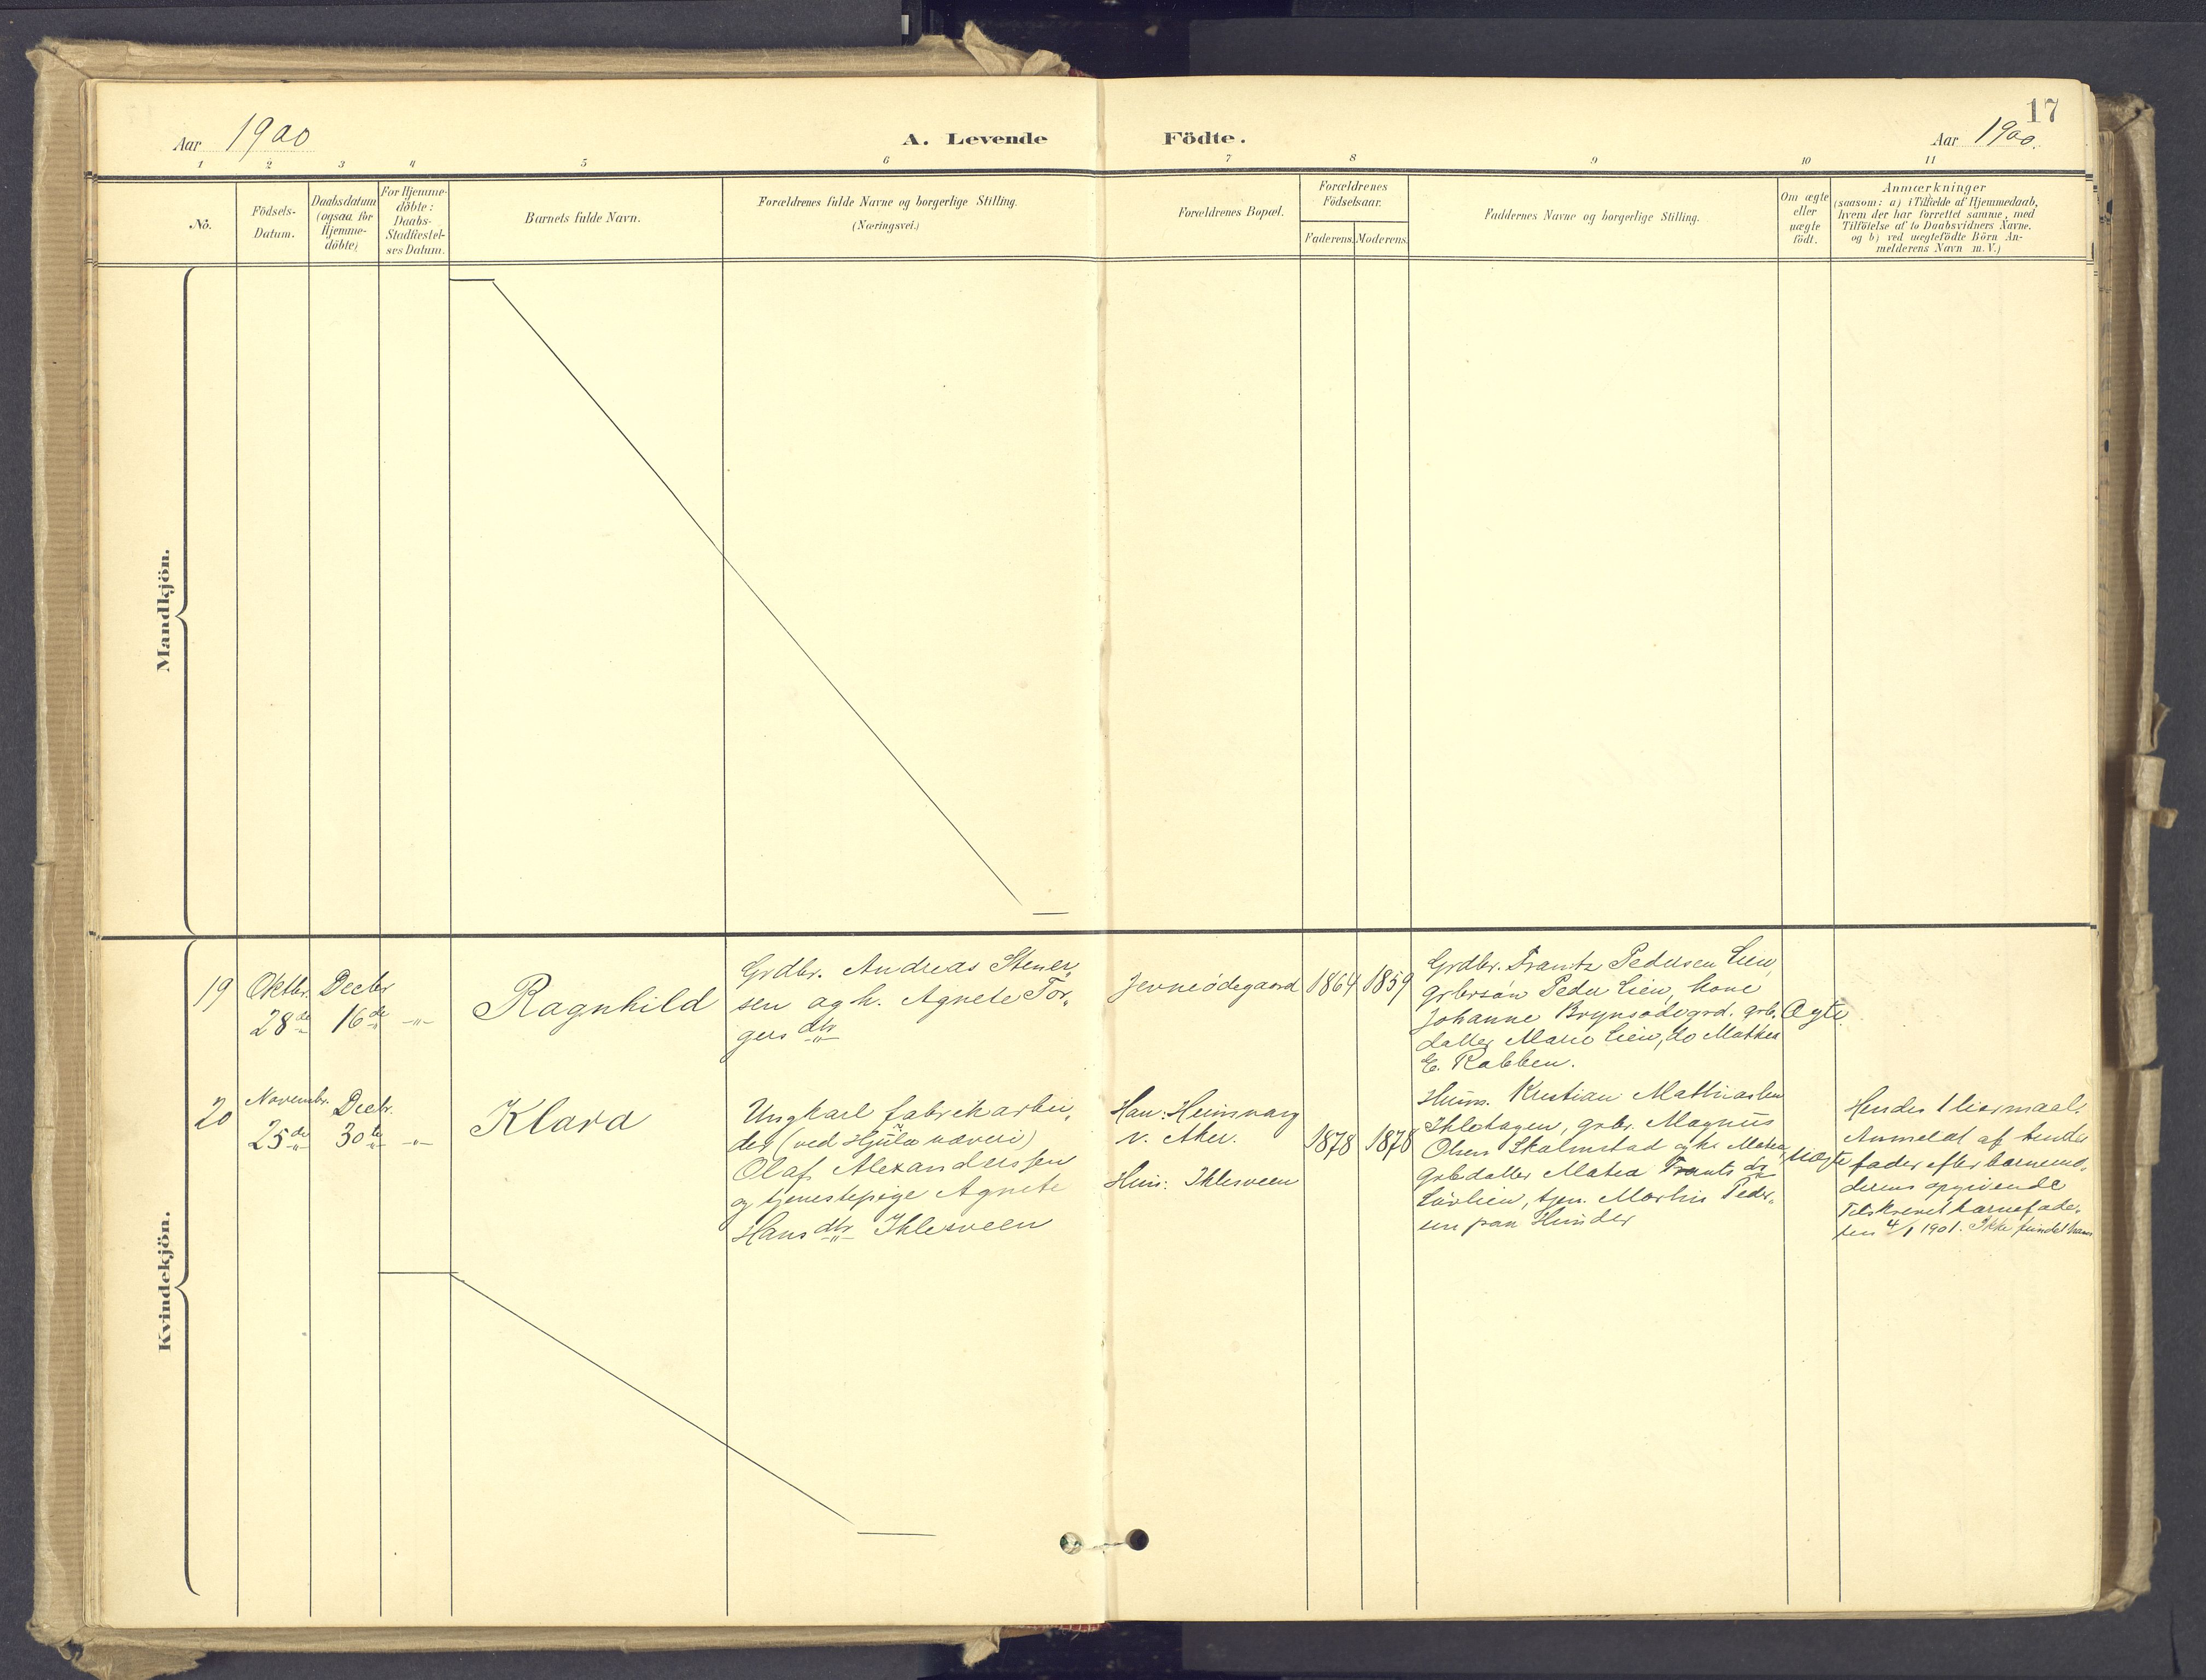 17
Aar 1900
A. Levende Födte.
Aar 1900.
1 2 3 4 5 6 7 8 9 10 11
No.
Födsels-
Datum.
Daabsdatum
(ogsaa for
Hjemme-
döbte)
For Hjemme-
döbte:
Daabs-
Stadfæstel-
ses Datum.
Barnets fulde Navn.
Forældrenes fulde Navne og borgerlige Stilling.
(Næringsvei.)
Forældrenes Bopæl.
Forældrenes
Födselsaar.
Faderens. Moderens.
Faddernes Navne og borgerlige Stilling.
Om ægte
eller
uægte
födt.
Anmærkninger
(saasom: a) i Tilfælde af Hjemmedaab,
hvem der har forrettet samme, med
Tilföielse af to Daabsvidners Navne,
og b) ved uægtefödte Börn An-
melderens Navn m. V.)
Mandkjön.
Kvindekjön.
19
Oktbr.
28de
Decbr
16de
-"-
Ragnhild
Grdbr. Andreas Stener,,
sen og h. Agnete Tor,,
gersdtr
Jevneödegaard
1864
1859
Grdbr. Frantz Pedersen Lien,
grbrsön Peder Lien, kone
Johanne Brynsödegrd. grb.
datter Marie Lien, do Mathea
E. Rabben.
Ægte.
20
Novembr.
25de
Decbr.
30te
-"-
Klara
Ungkarl fabrikarbei,,
der (ved Hjula væveri)
Olaf Alexanderssen
og tjenestepige Agnete
Hansdtr Ihlesveen
Han: Heimvang
v. Aker.
Hun: Ihlesveen
1878
1878
Husm. Kristian Mathiassen
Ihlehagen, grbr. Magnus
Olsen Skalmstad
grbdatter Matea Frants dr
tjen. Martin Peder,,
sen paa Hunder
Uægte
Hendes 1 leiermaal.
Anmeldt af hendes
fader efter barnemo,,
derens opgivende
Tilskrevet barnefade,,
ren 4/1 1901. Ikke fundet ham